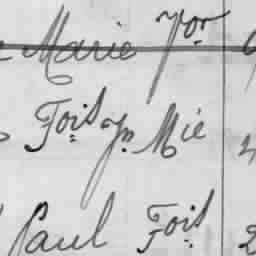 Marie Yor
Fois Jn Mie
Paul Fois